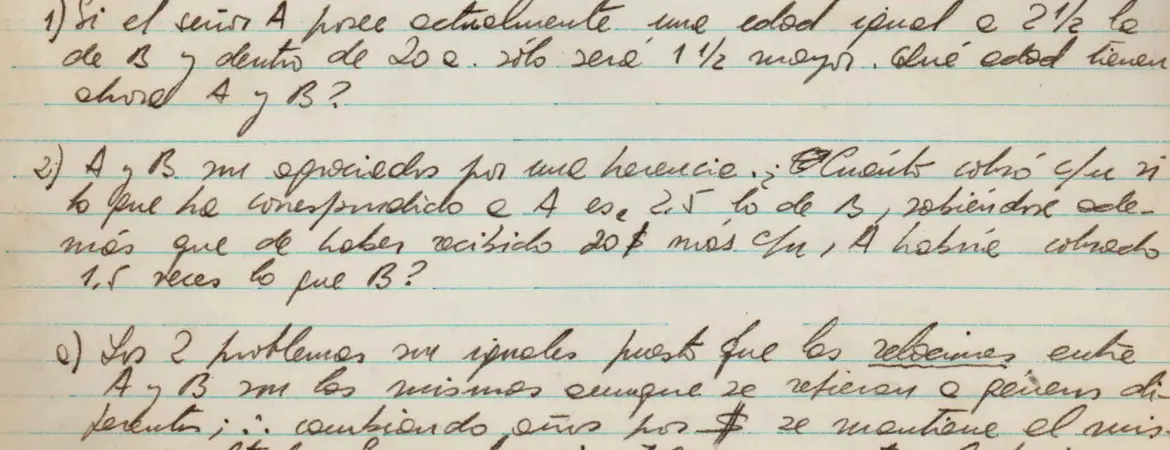 1) Si el señor A posee actualmente una edad igual a 2 1/2 la
de B y dentro de 20 a. sólo será 1 1/2 mayor. Qué edad tienen
ahora A y B?
2) A y B son agraciados por una herencia. ¿Cuánto cobró c/u si
lo que ha correspondido a A es 2.5 lo de B, sabiéndose ade-
más que de haber recibido 20 $ más c/u, A habría cobrado
1.5 veces lo que B?
a) Los 2 problemas son iguales puesto que las relaciones entre
A y B son las mismas aunque se refieran a géneros di-
ferentes; ∴ cambiando años por $ se mantiene el mis-